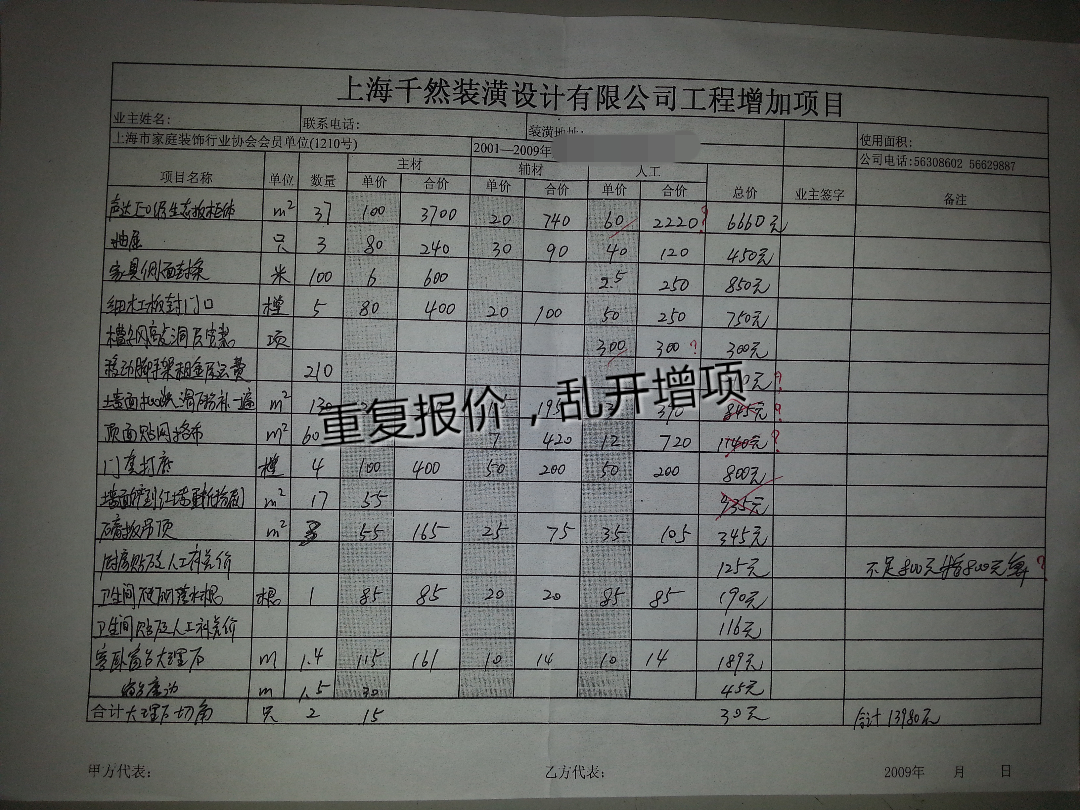 上海千然装潢设计有限公司工程增加项目
业主姓名: 联系电话: 装潢地址: 使用面积:
上海市家庭装饰行业协会会员单位(1210号) 2001—2009年 公司电话:56308602 56629887
项目名称 单位 数量 主材 辅材 人工 总价 业主签字 备注
单价 合价 单价 合价 单价 合价
E0级生态板柜体 m² 37 100 3700 20 740 60 2220? 6660元
抽屉 只 3 80 240 30 90 40 120 450元
家具侧面封条 米 100 6 600 2.5 250 850元
细木工板封门口 樘 5 80 400 20 100 50 250 750元
项 300 300? 300元
移动脚手架租金及运费 210 ?
墙面 滑石粉补一遍 m² 130 195 390 845元?
重复报价，乱开增项
顶面贴网格布 m² 60 7 420 12 720 1140元?
门套打底 樘 4 100 400 50 200 50 200 800元
m² 17 55 935元
石膏板吊顶 m² 3 55 165 25 75 35 105 345元
厨房贴砖人工补差价 125元 不足800元 800元算?
卫生间 落水根 根 1 85 85 20 20 85 85 190元
卫生间贴砖人工补差价 116元
客卧窗台大理石 m 1.4 115 161 10 14 10 14 189元
m 1.5 30 45元
合计 大理石切角 只 2 15 30元 合计13980元
甲方代表: 乙方代表: 2009年 月 日